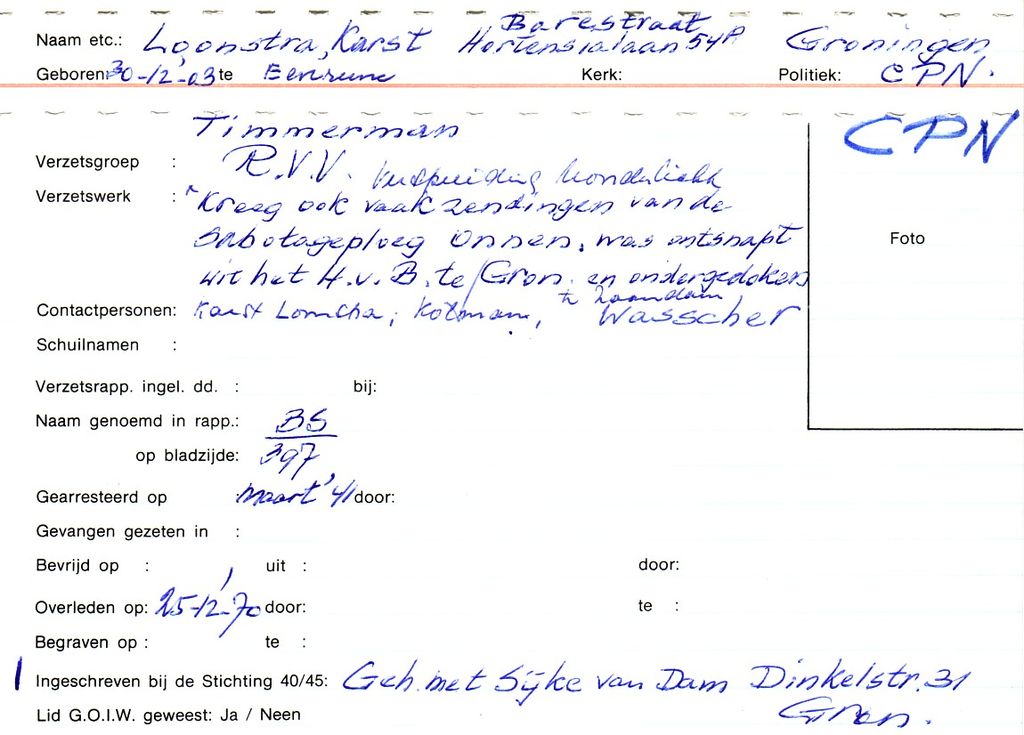 Barestraat
Naam etc.: Loonstra, Karst Hortensialaan 54A Groningen
Geboren: 30-12-03 te Eenrum Kerk: Politiek: CPN.
Timmerman CPN
Verzetsgroep : R.V.V. Verspreiding
Verzetswerk : "Kreeg ook vaak zendingen van de
sabotageploeg Onnen, was ontsnapt
uit het H.v.B. te Gron. en ondergedoken
te Zaandam
Contactpersonen: Karst Kolman, Wasscher
Schuilnamen :
Foto
Verzetsrapp. ingel. dd. : bij:
Naam genoemd in rapp.: BS
op bladzijde: 397
Gearresteerd op maart '41 door:
Gevangen gezeten in :
Bevrijd op : uit : door:
Overleden op: 25-12-70 door: te :
Begraven op : te :
Ingeschreven bij de Stichting 40/45: Geh. met Sijke van Dam Dinkelstr. 31
Gron.
Lid G.O.I.W. geweest: Ja / Neen